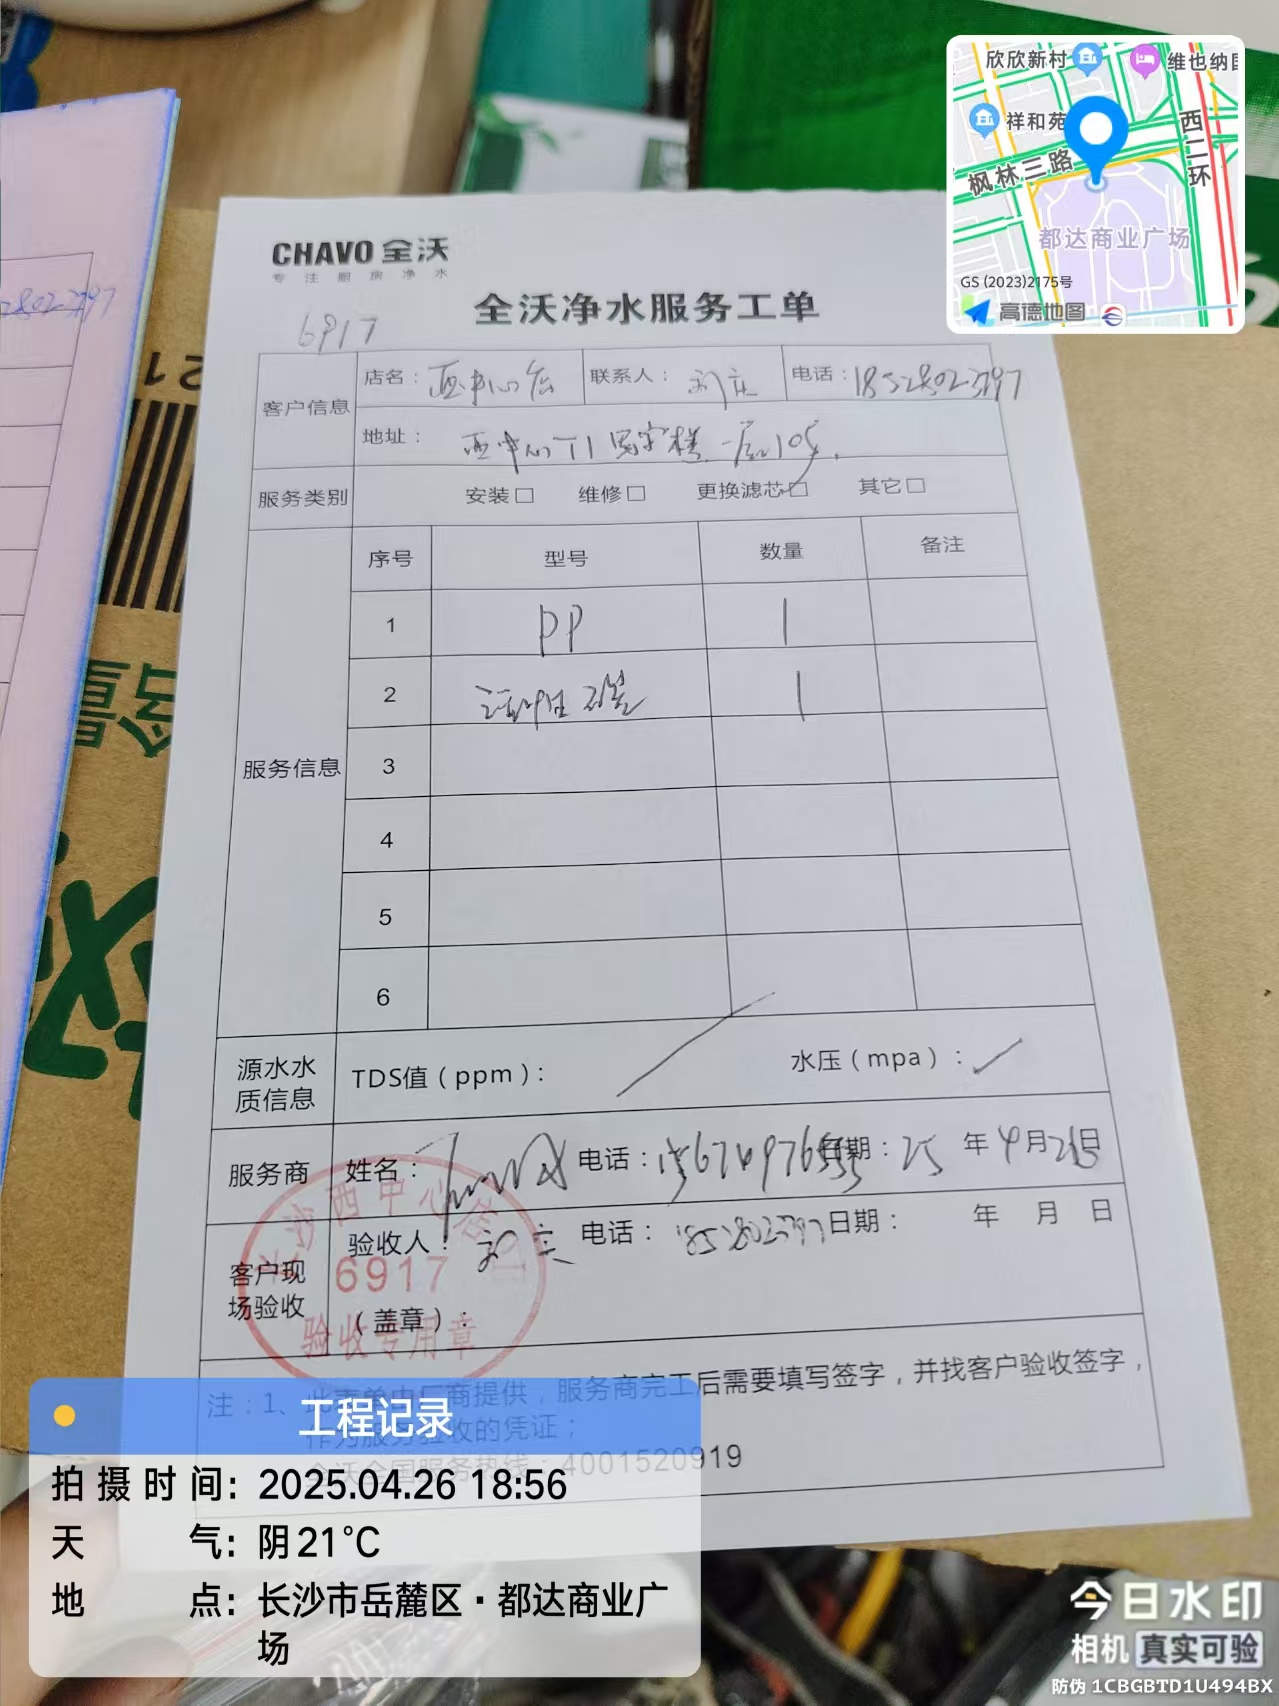 欣欣新村
维也纳国
祥和苑
枫林三路
西二环
都达商业广场
GS (2023)2175号
高德地图
CHAVO 全沃
专注厨房净水
全沃净水服务工单
6917
客户信息
店名：西中心店 联系人： 电话：18528023797
地址：西中心T1写字楼一层105.
服务类别 安装□ 维修□ 更换滤芯□ 其它□
服务信息
序号 型号 数量 备注
1 PP 1
2 活性炭 1
3
4
5
6
源水水质信息 TDS值（ppm）： 水压（mpa）：
服务商 姓名： 电话： 日期：25年4月26日
客户现场验收 验收人： 电话：18528023797 日期： 年 月 日
（盖章）：
西中心店
6917
验收专用章
注：1、此表单由厂商提供，服务商完工后需要填写签字，并找客户验收签字，
作为服务验收的凭证；
全沃全国服务热线：4001520919
工程记录
拍摄时间：2025.04.26 18:56
天气：阴21°C
地点：长沙市岳麓区·都达商业广
场
今日水印
相机 真实可验
防伪 1CBGBTD1U494BX